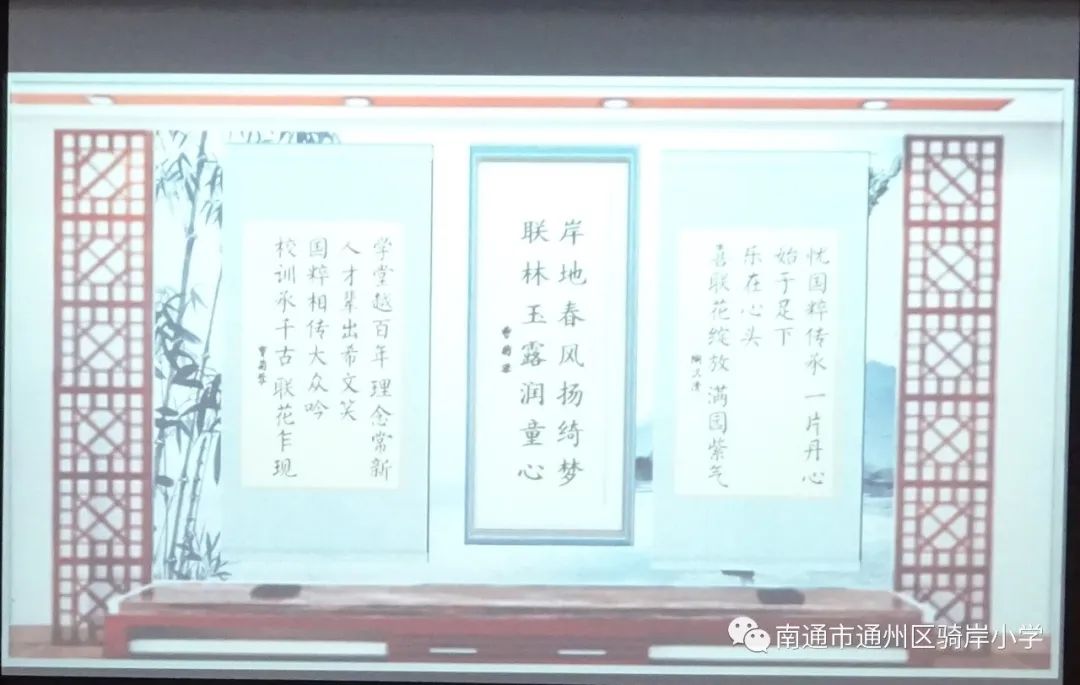 忧国粹传承 一片丹心
始于足下
乐在心头
喜联花绽放 满园紫气
岸地春风扬绮梦
联林玉露润童心
学堂越百年 理念常新
人才辈出希文笑
国粹相传大众吟
校训承千古 联花乍现
南通市通州区骑岸小学